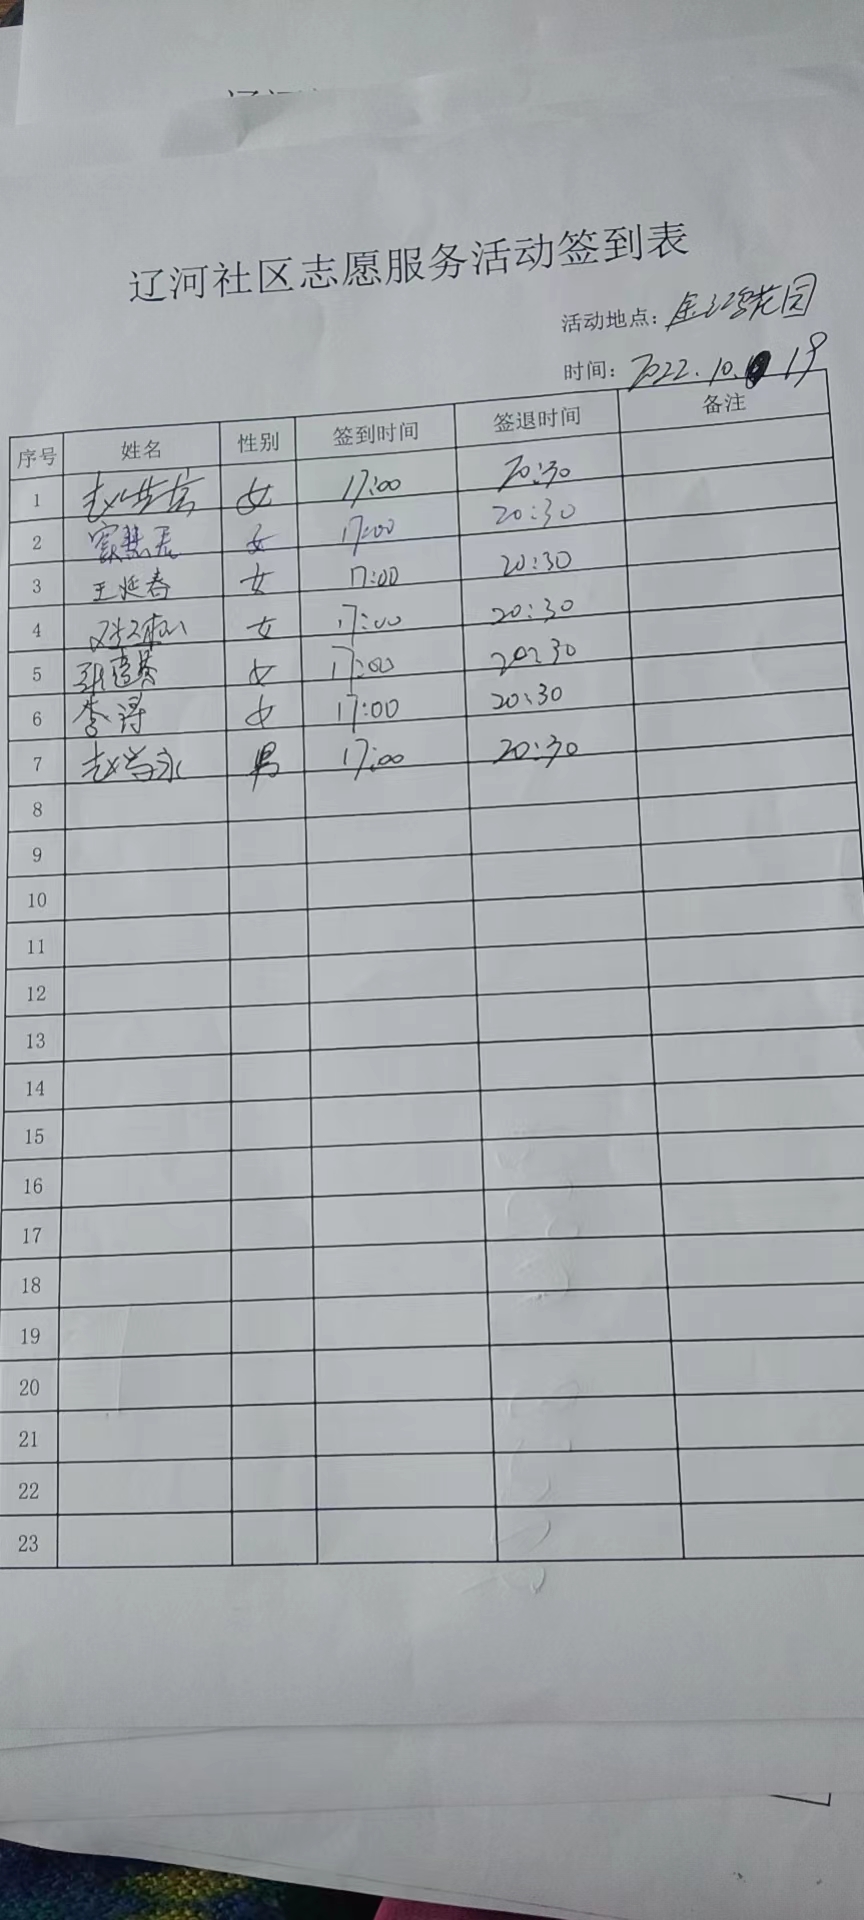 辽河社区志愿服务活动签到表
活动地点：金江花园
时间：2022.10.19
序号 姓名 性别 签到时间 签退时间 备注
1 女 17:00 20:30
2 女 17:00 20:30
3 王延春 女 17:00 20:30
4 女 17:00 20:30
5 女 17:00 20:30
6 李 女 17:00 20:30
7 赵 永 男 17:00 20:30
8
9
10
11
12
13
14
15
16
17
18
19
20
21
22
23